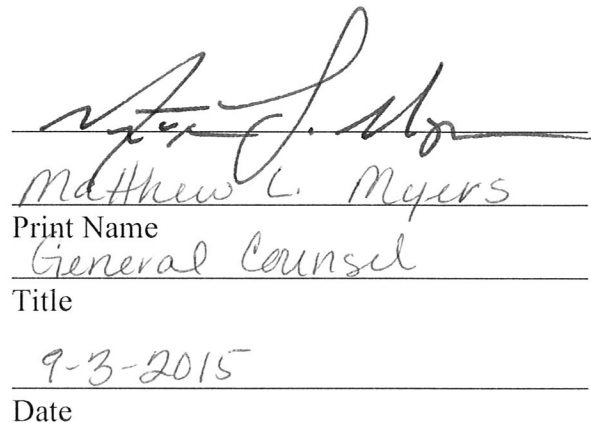 Matthew L. Myers
Print Name
General Counsel
Title
9-3-2015
Date